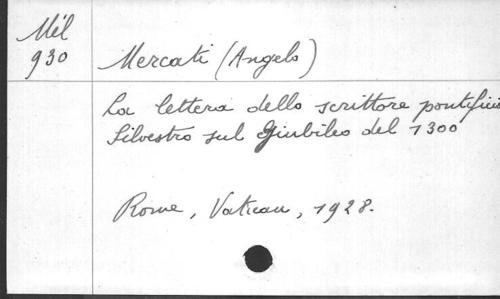 Mél
930
Mercati (Angelo)
La lettera dello scrittore pontificio
Silvestro sul Giubileo del 1300
Rome, Vatican, 1928.